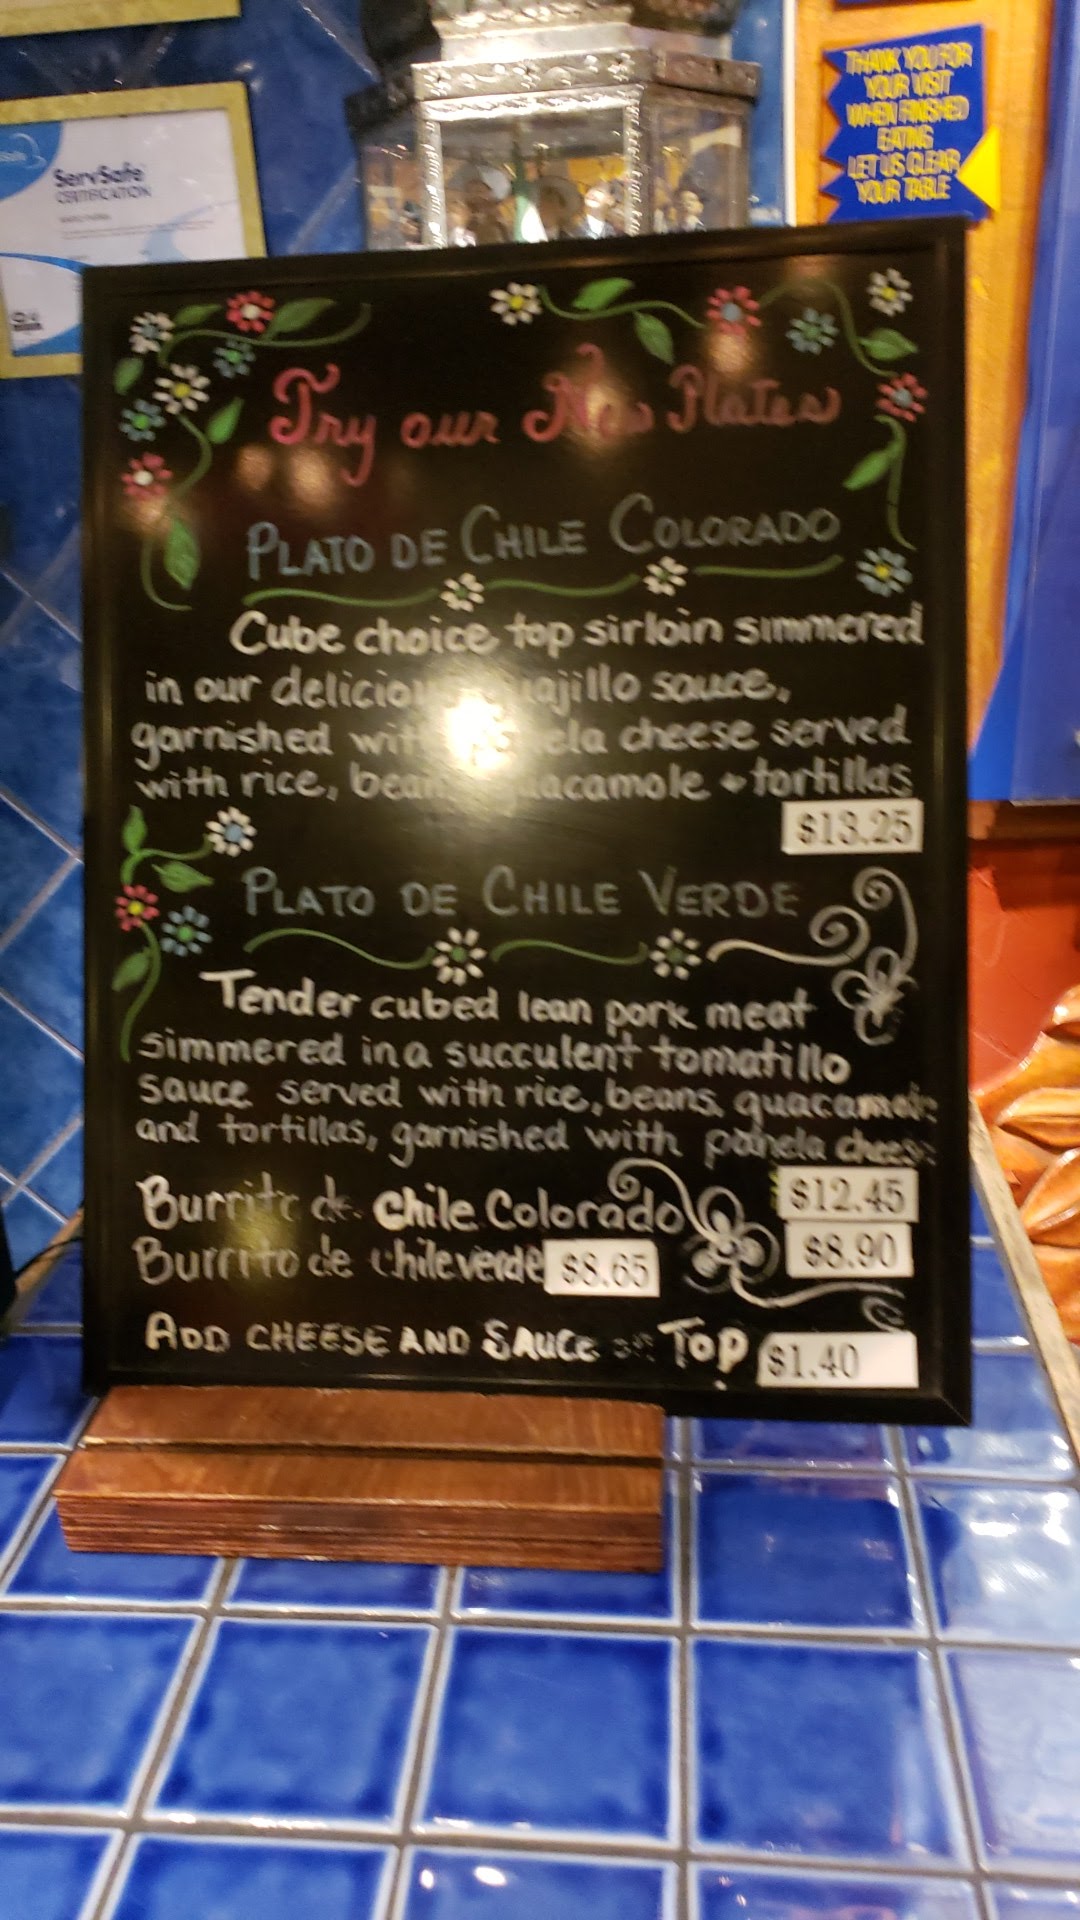 ServSafe
CERTIFICATION
THANK YOU FOR
YOUR VISIT
WHEN FINISHED
EATING
LET US CLEAR
YOUR TABLE
Try our New Plates
PLATO DE CHILE COLORADO
Cube choice top sirloin simmered
in our delicious guajillo sauce,
garnished with panela cheese served
with rice, beans, guacamole + tortillas
$13.25
PLATO DE CHILE VERDE
Tender cubed lean pork meat
simmered in a succulent tomatillo
sauce served with rice, beans, guacamole
and tortillas, garnished with panela cheese
$12.45
Burrito de chile Colorado $8.90
Burrito de chile verde $8.65
ADD CHEESE AND SAUCE on TOP $1.40